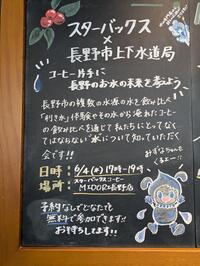 スターバックス
×
長野市上下水道局
コーヒー片手に
長野のお水の未来を考えよう
長野市の複数の水源の水を飲み比べ
「利き水」体験やその水から淹れたコーヒー
の飲み比べを通じて私たちにとってなくて
はならない"水"について知っていただく
会です!!
日時:6/4(水)17時-19時
場所:スターバックスコーヒー
MIDORI長野店
予約なしでどなたでも
無料で参加できます!!
お待ちしてます!!
みずなちゃんも
くるよー!!